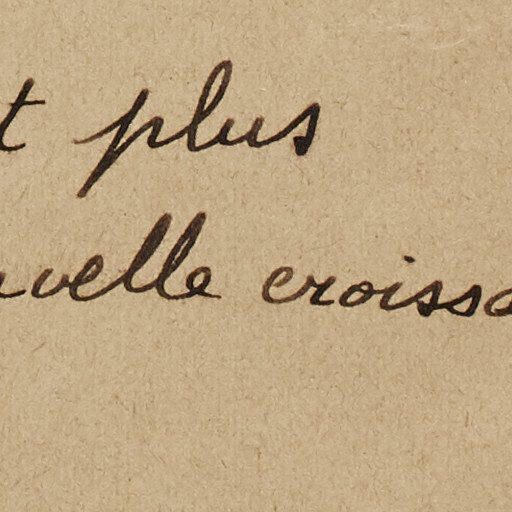 t plus
uvelle croissa